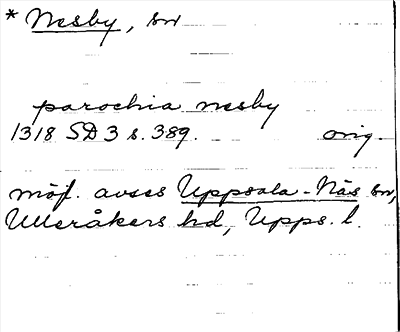 * Nesby, sn
parochia nesby
1318 SD 3 s. 389. orig.
möjl. avses Uppsala-Näs sn,
Ulleråkers hd, Upps. l.